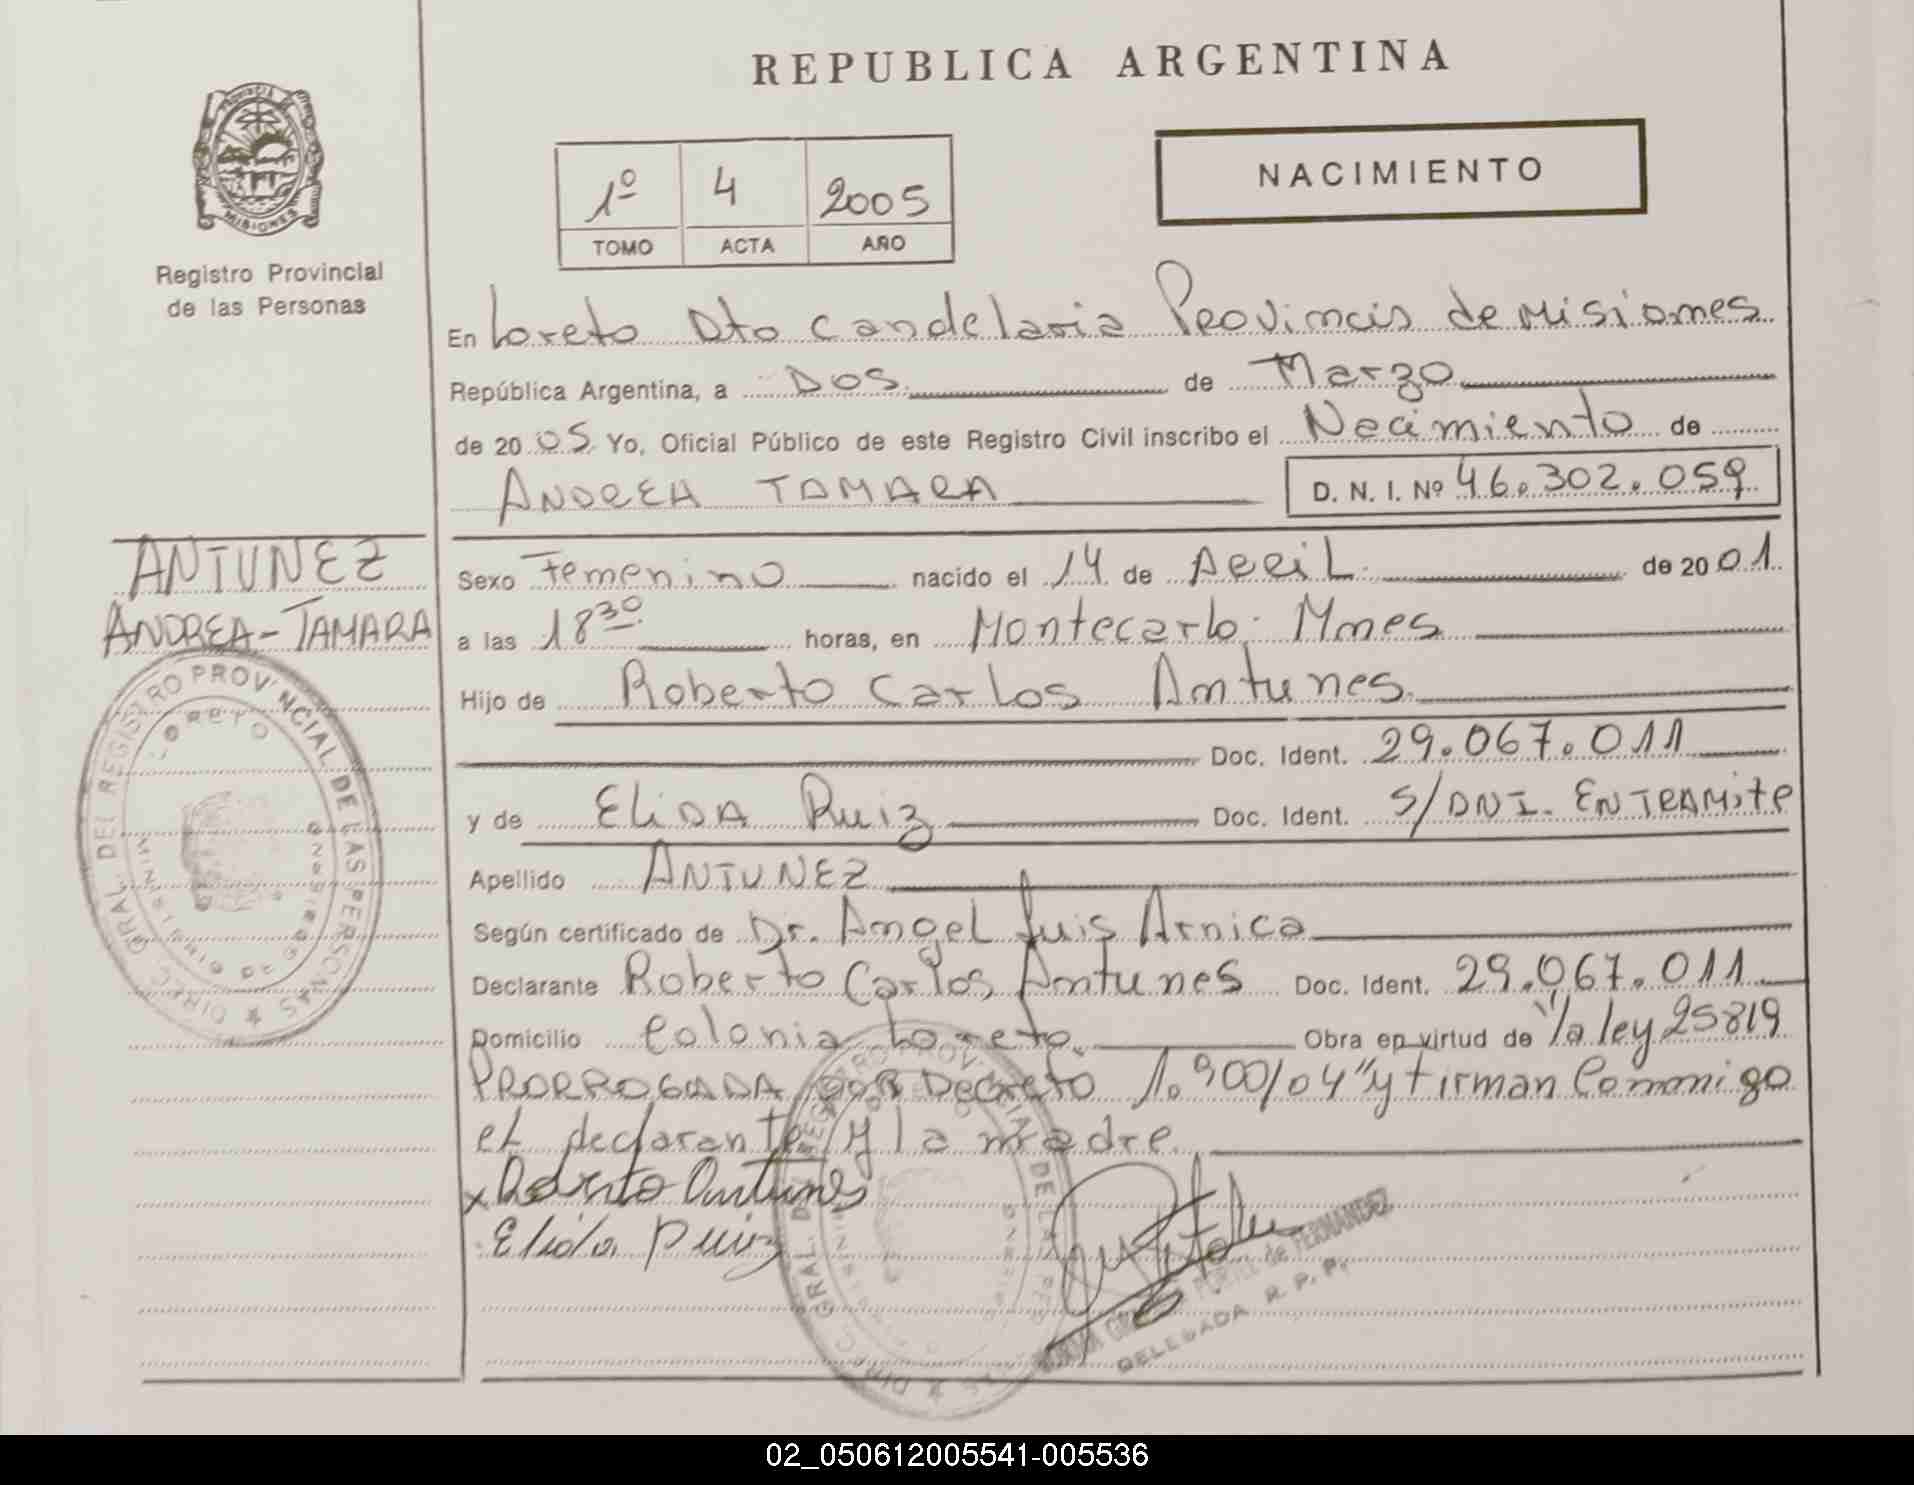 REPUBLICA ARGENTINA
PROVINCIA DE MISIONES
Registro Provincial
de las Personas
1º 4 2005
TOMO ACTA AÑO
NACIMIENTO
En Loreto Dto Candelaria Provincia de Misiones
República Argentina, a Dos de Marzo
de 2005 Yo, Oficial Público de este Registro Civil inscribo el Nacimiento de
ANDREA TAMARA D. N. I. Nº 46.302.059
ANTUNEZ
ANDREA-TAMARA
Sexo Femenino nacido el 14 de Abril de 2001
a las 18 30 horas, en Montecarlo. Mnes
Hijo de Roberto Carlos Antunes
Doc. Ident. 29.067.011
y de Elida Ruiz Doc. Ident. S/DNI. EN TRAMite
Apellido ANTUNEZ
Según certificado de Dr. Angel Luis Arnica
Declarante Roberto Carlos Antunes Doc. Ident. 29.067.011
Domicilio Colonia Loreto. Obra en virtud de "la ley 25819
PRORROGADA POR Decreto 1.900/04" y firman Conmigo
el declarante y la madre.
x Roberto Antunes
Elida Ruiz
DIREC. GRAL. DEL REGISTRO PROVINCIAL DE LAS PERSONAS
LORETO
DIREC. GRAL. DEL REGISTRO PROVINCIAL DE LAS PERSONAS
de FERNANDEZ
DELEGADA R. P. P.
02_050612005541-005536